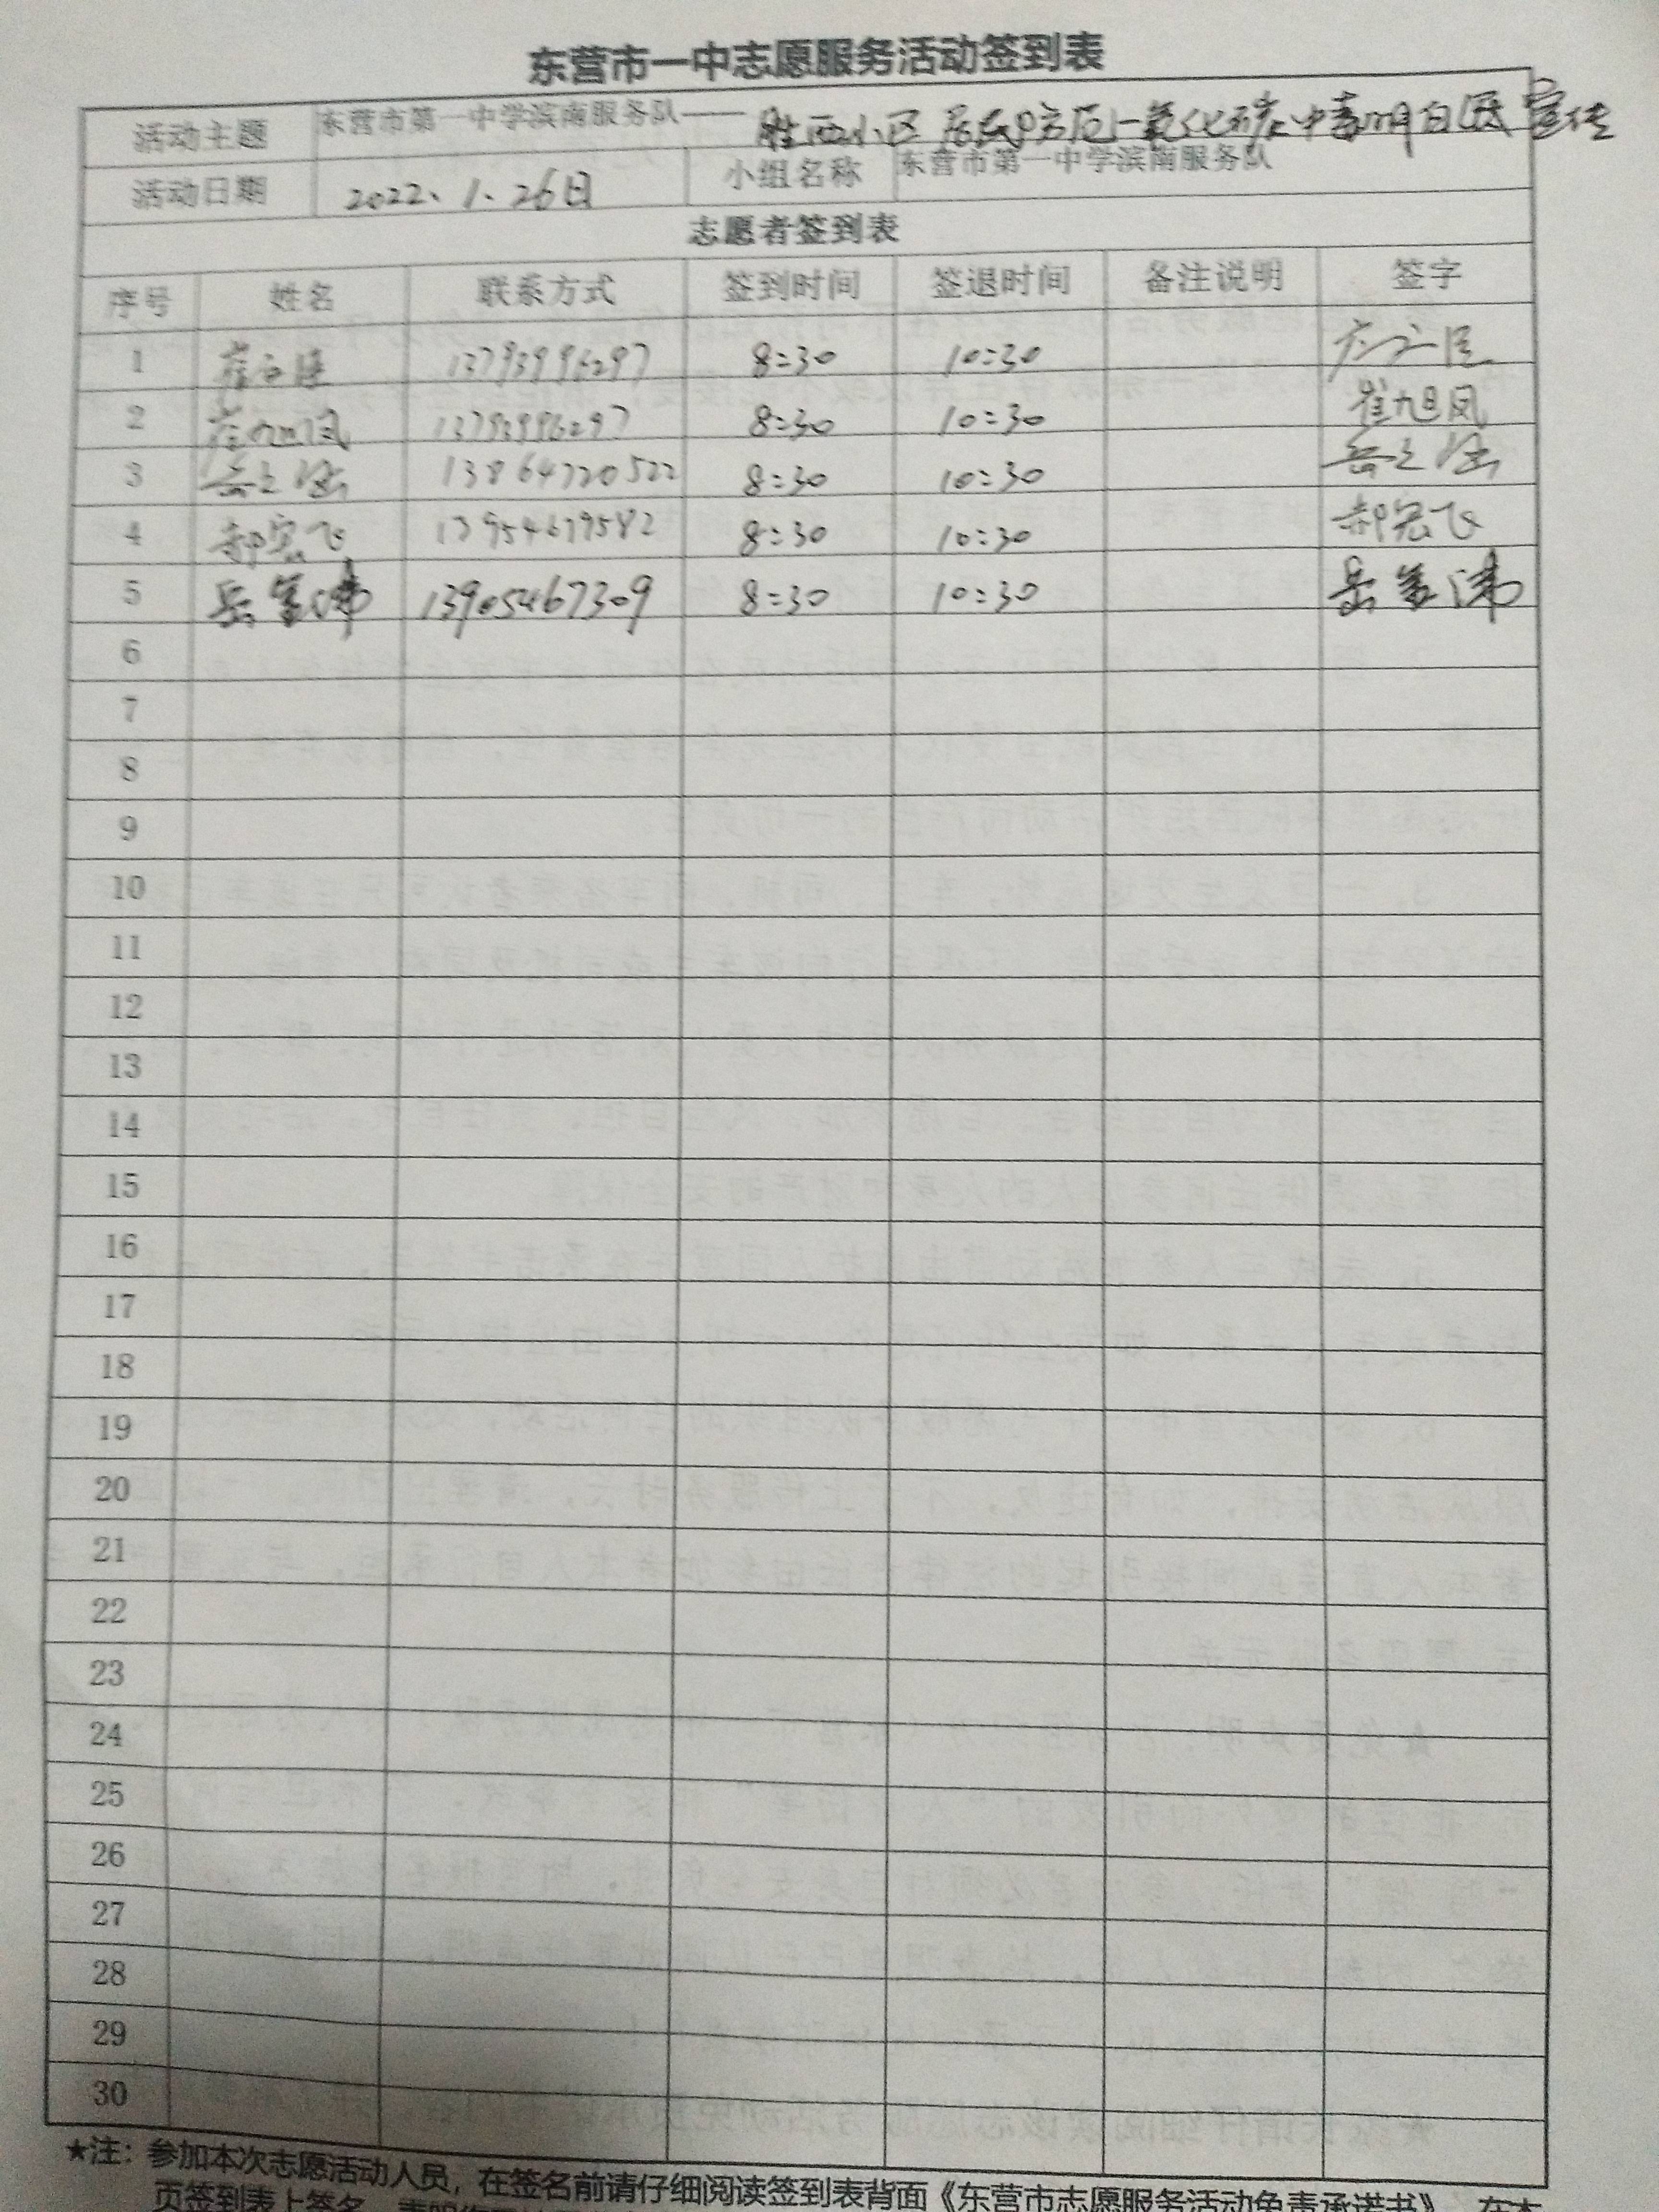 东营市一中志愿服务活动签到表
活动主题 东营市第一中学滨南服务队—— 胜西小区居民防范一氧化碳中毒明白纸宣传
活动日期 2022、1、26日 小组名称 东营市第一中学滨南服务队
志愿者签到表
序号 姓名 联系方式 签到时间 签退时间 备注说明 签字
1 13793996297 8:30 10:30
2 崔旭凤 13793996297 8:30 10:30 崔旭凤
3 13864720522 8:30 10:30
4 郝宏飞 13954679582 8:30 10:30 郝宏飞
5 13905467309 8:30 10:30
6
7
8
9
10
11
12
13
14
15
16
17
18
19
20
21
22
23
24
25
26
27
28
29
30
★注：参加本次志愿活动人员，在签名前请仔细阅读签到表背面《东营市志愿服务活动免责承诺书》，在本
页签到表上签名，表明